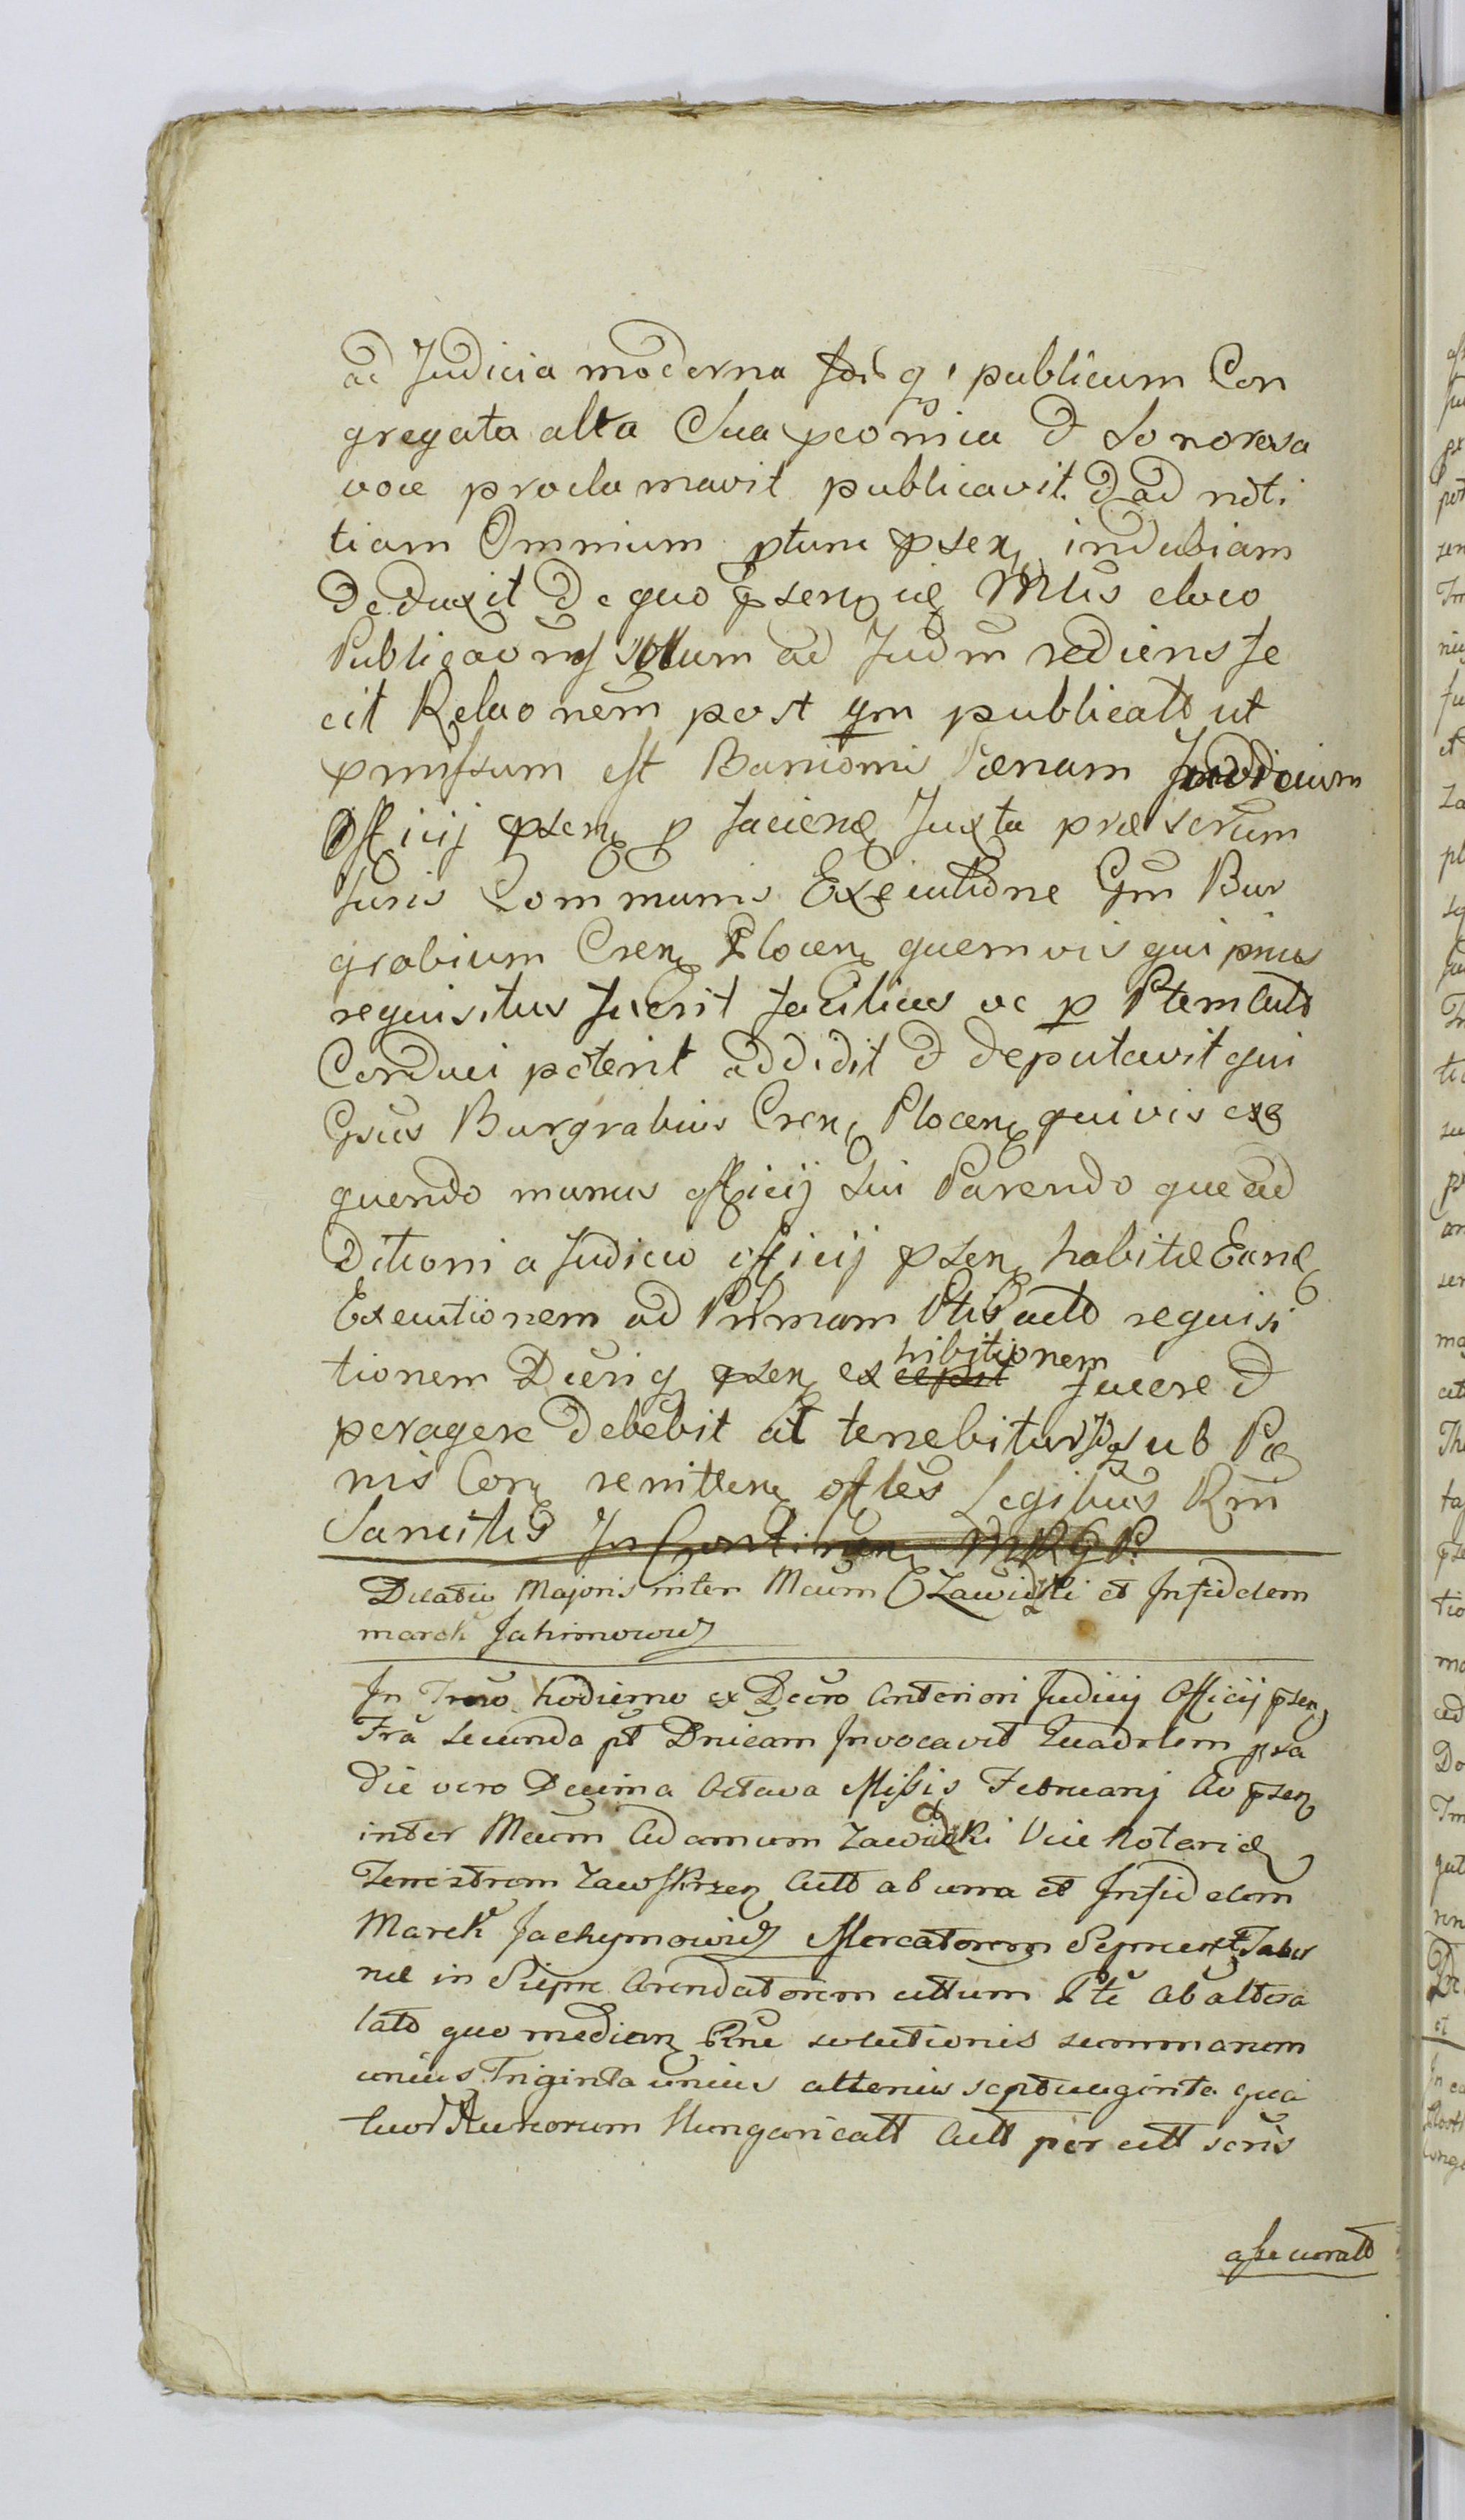 ad Judicia moderna publicum Con
gregata alta Sua peomia & Sonorosa
voce proclamavit publicavit & ad noti
tiam Omnium ptum psen indubiam
Deduxit De quo psen Mtlis eloco
Publicaonis ad Judm rediens fe
cit Relaonem post qm publicatt ut
pmissum est Banionis Paenam Judicium
Officij psen p faciend Juxta praescrum
Juris Communis Executione Gm Bur
grabium Cren Plocen quemvis qui prius
requisitus fuerit facilius ac p Ptem Actt
Conduci poterit addidit & deputavit qui
Gsus Burgrabius Cren Plocen quivis exe
quendo munus officij Sui Parendo que ad
Ditioni a Judicio officij psen habitae Eand
Executionem ad Primam Ptis actt requisi
tionem Decriq psen exhibitionem facere &
peragere Debebit at tenebitur sub Pae
nis Con remitten ofles Legibus Rm
Sancitis
Dilatio Majoris inter Mcum Zawidzki et Infidelem
marek Jahimowicz
In Trno hodierno ex Decro Anteriori Judicij Officij psen
Fra secunda pt Dnicam Invocavit Quadrlem pxa
die vero Decima Octava Msis Februarij Ao psen
inter Mcum Adamum Zawidzki Vice Notariu
Terrestrem Zawskrzen Actt ab una et Infidelem
Marek Jachymowicz Mercatorem Sepruen et Taber
nae in Siepre Arendatorem cittum Pte Ab altera
latt quo median Rne solutionis summarum
unius Triginta unius alterius septuaginta qua
tuor Aureorum Hungaricatt Actt per citt scris
assecuratt